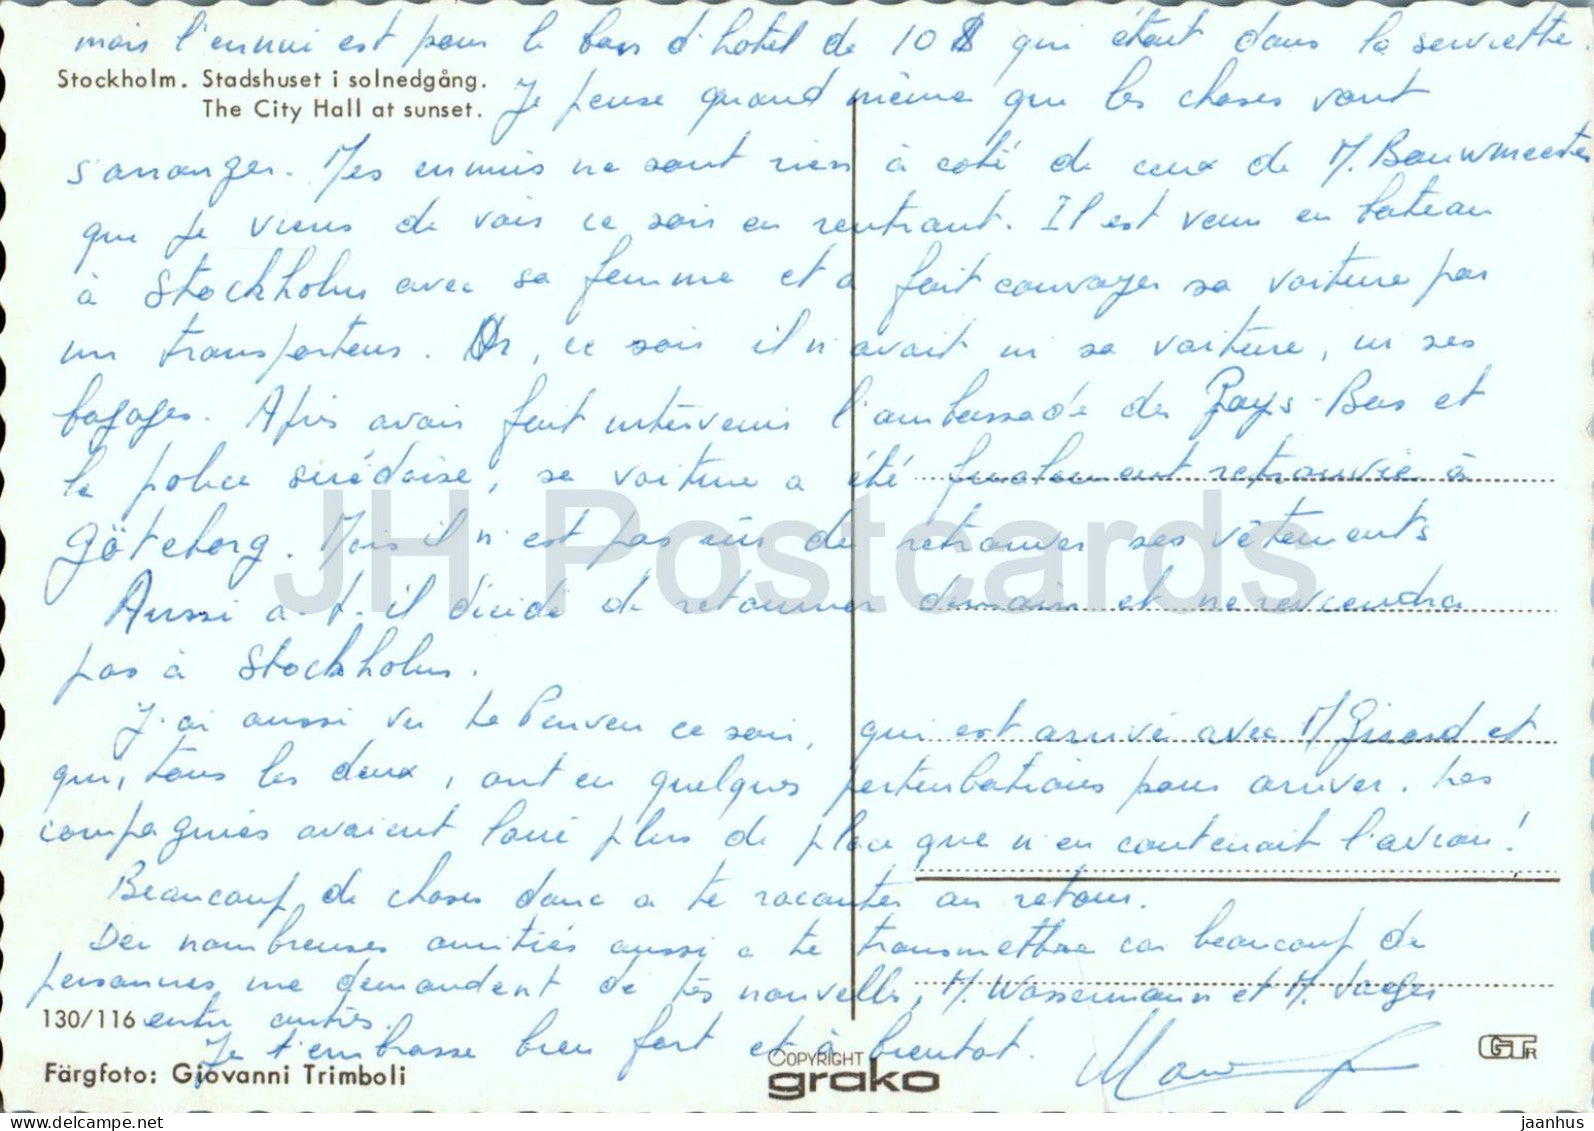 mais l'ennui est pour le bon d'hôtel de 10 $ qui était dans la serviette.
Stockholm. Stadshuset i solnedgång.
The City Hall at sunset.
Je pense quand même que les choses vont
s'arranger. Mes ennuis ne sont rien à côté de ceux de M. Bouwmeester
que je viens de voir ce soir en rentrant. Il est venu en bateau
à Stockholm avec sa femme et a fait convoyer sa voiture par
un transporteur. Or, ce soir il n'avait ni sa voiture, ni ses
bagages. Après avoir fait intervenir l'ambassade des Pays-Bas et
la police suédoise, sa voiture a été finalement retrouvée à
Göteborg. Mais il n'est pas sûr de retrouver ses vêtements
Aussi a-t-il décidé de retourner demain et ne reviendra
pas à Stockholm.
J'ai aussi vu Le Penven ce soir, qui est arrivé avec M. Girard et
qui, tous les deux, ont eu quelques perturbations pour arriver. Les
compagnies avaient loué plus de place que n'en contenait l'avion!
Beaucoup de choses donc à te raconter au retour.
De nombreuses amitiés aussi à te transmettre car beaucoup de
personnes me demandent de tes nouvelles, M. Wassermann et M.
130/116
entre autres.
Je t'embrasse bien fort et à bientôt.
Färgfoto: Giovanni Trimboli
COPYRIGHT
grako
GTR
JH Postcards
jaanhus